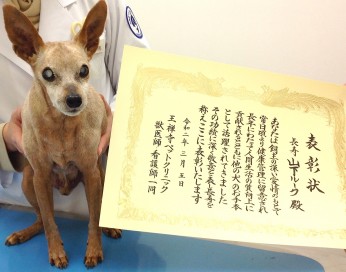 表彰状
長寿 山下ルーク 殿
あなたは飼主の深い愛情のもとで
常日頃より健康管理に留意され
長年にわたって人間生活の質向上に
貢献されるとともに他の犬のお手本
として活躍されてきました
その功績に深く敬意を表し長寿を
称えここに表彰いたします
令和二年 三月 五日
王禅寺ペットクリニック
獣医師 看護師一同